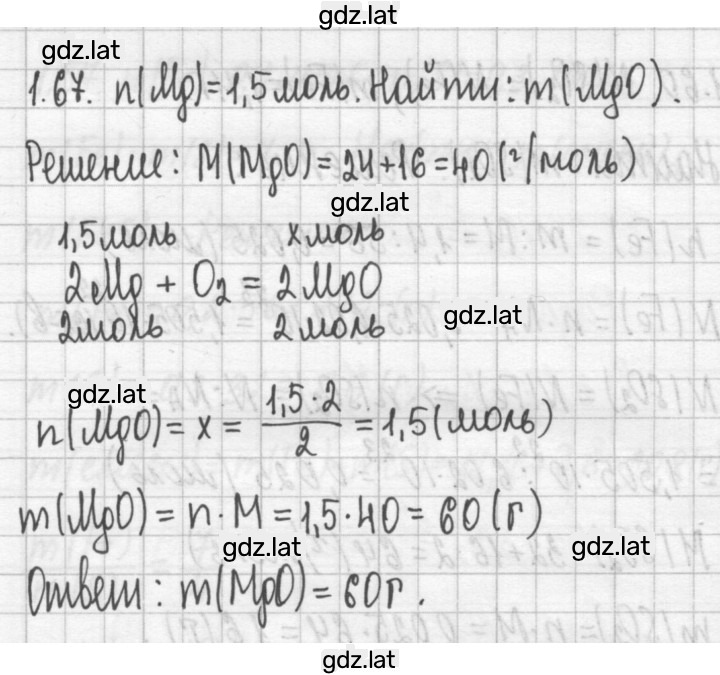 gdz.lat
gdz.lat
1.67. n(Mg)=1,5моль. Найти: m(MgO).
Решение: M(MgO)=24+16=40(г/моль)
gdz.lat
1,5моль хмоль
2Mg + O₂ = 2MgO
gdz.lat
2моль 2моль
gdz.lat
n(MgO)= x = 1,5·2/2 = 1,5(моль)
m(MgO)= n·M = 1,5·40 = 60(г)
gdz.lat gdz.lat
Ответ: m(MgO)= 60г.
gdz.lat